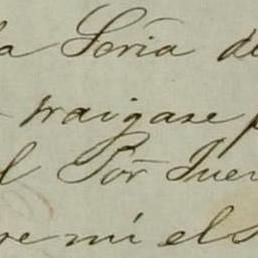 la Sería de
traigase p
l Por Juez
re mi el S